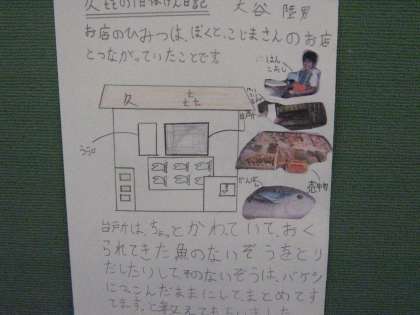 久㐂の1日体けん日記 大谷 陸男
お店のひみつは、ぼくと、こじまさんのお店
とつながっていたことです
久 㐂
ごはん
かんぱち
台所は、ちょっとかわっていて、おく
られてきた魚のないぞうをとり
だしたりしてそのないぞうは、バケツ
につっこんだままにして、まとめてす
てます。と教えてもらいました